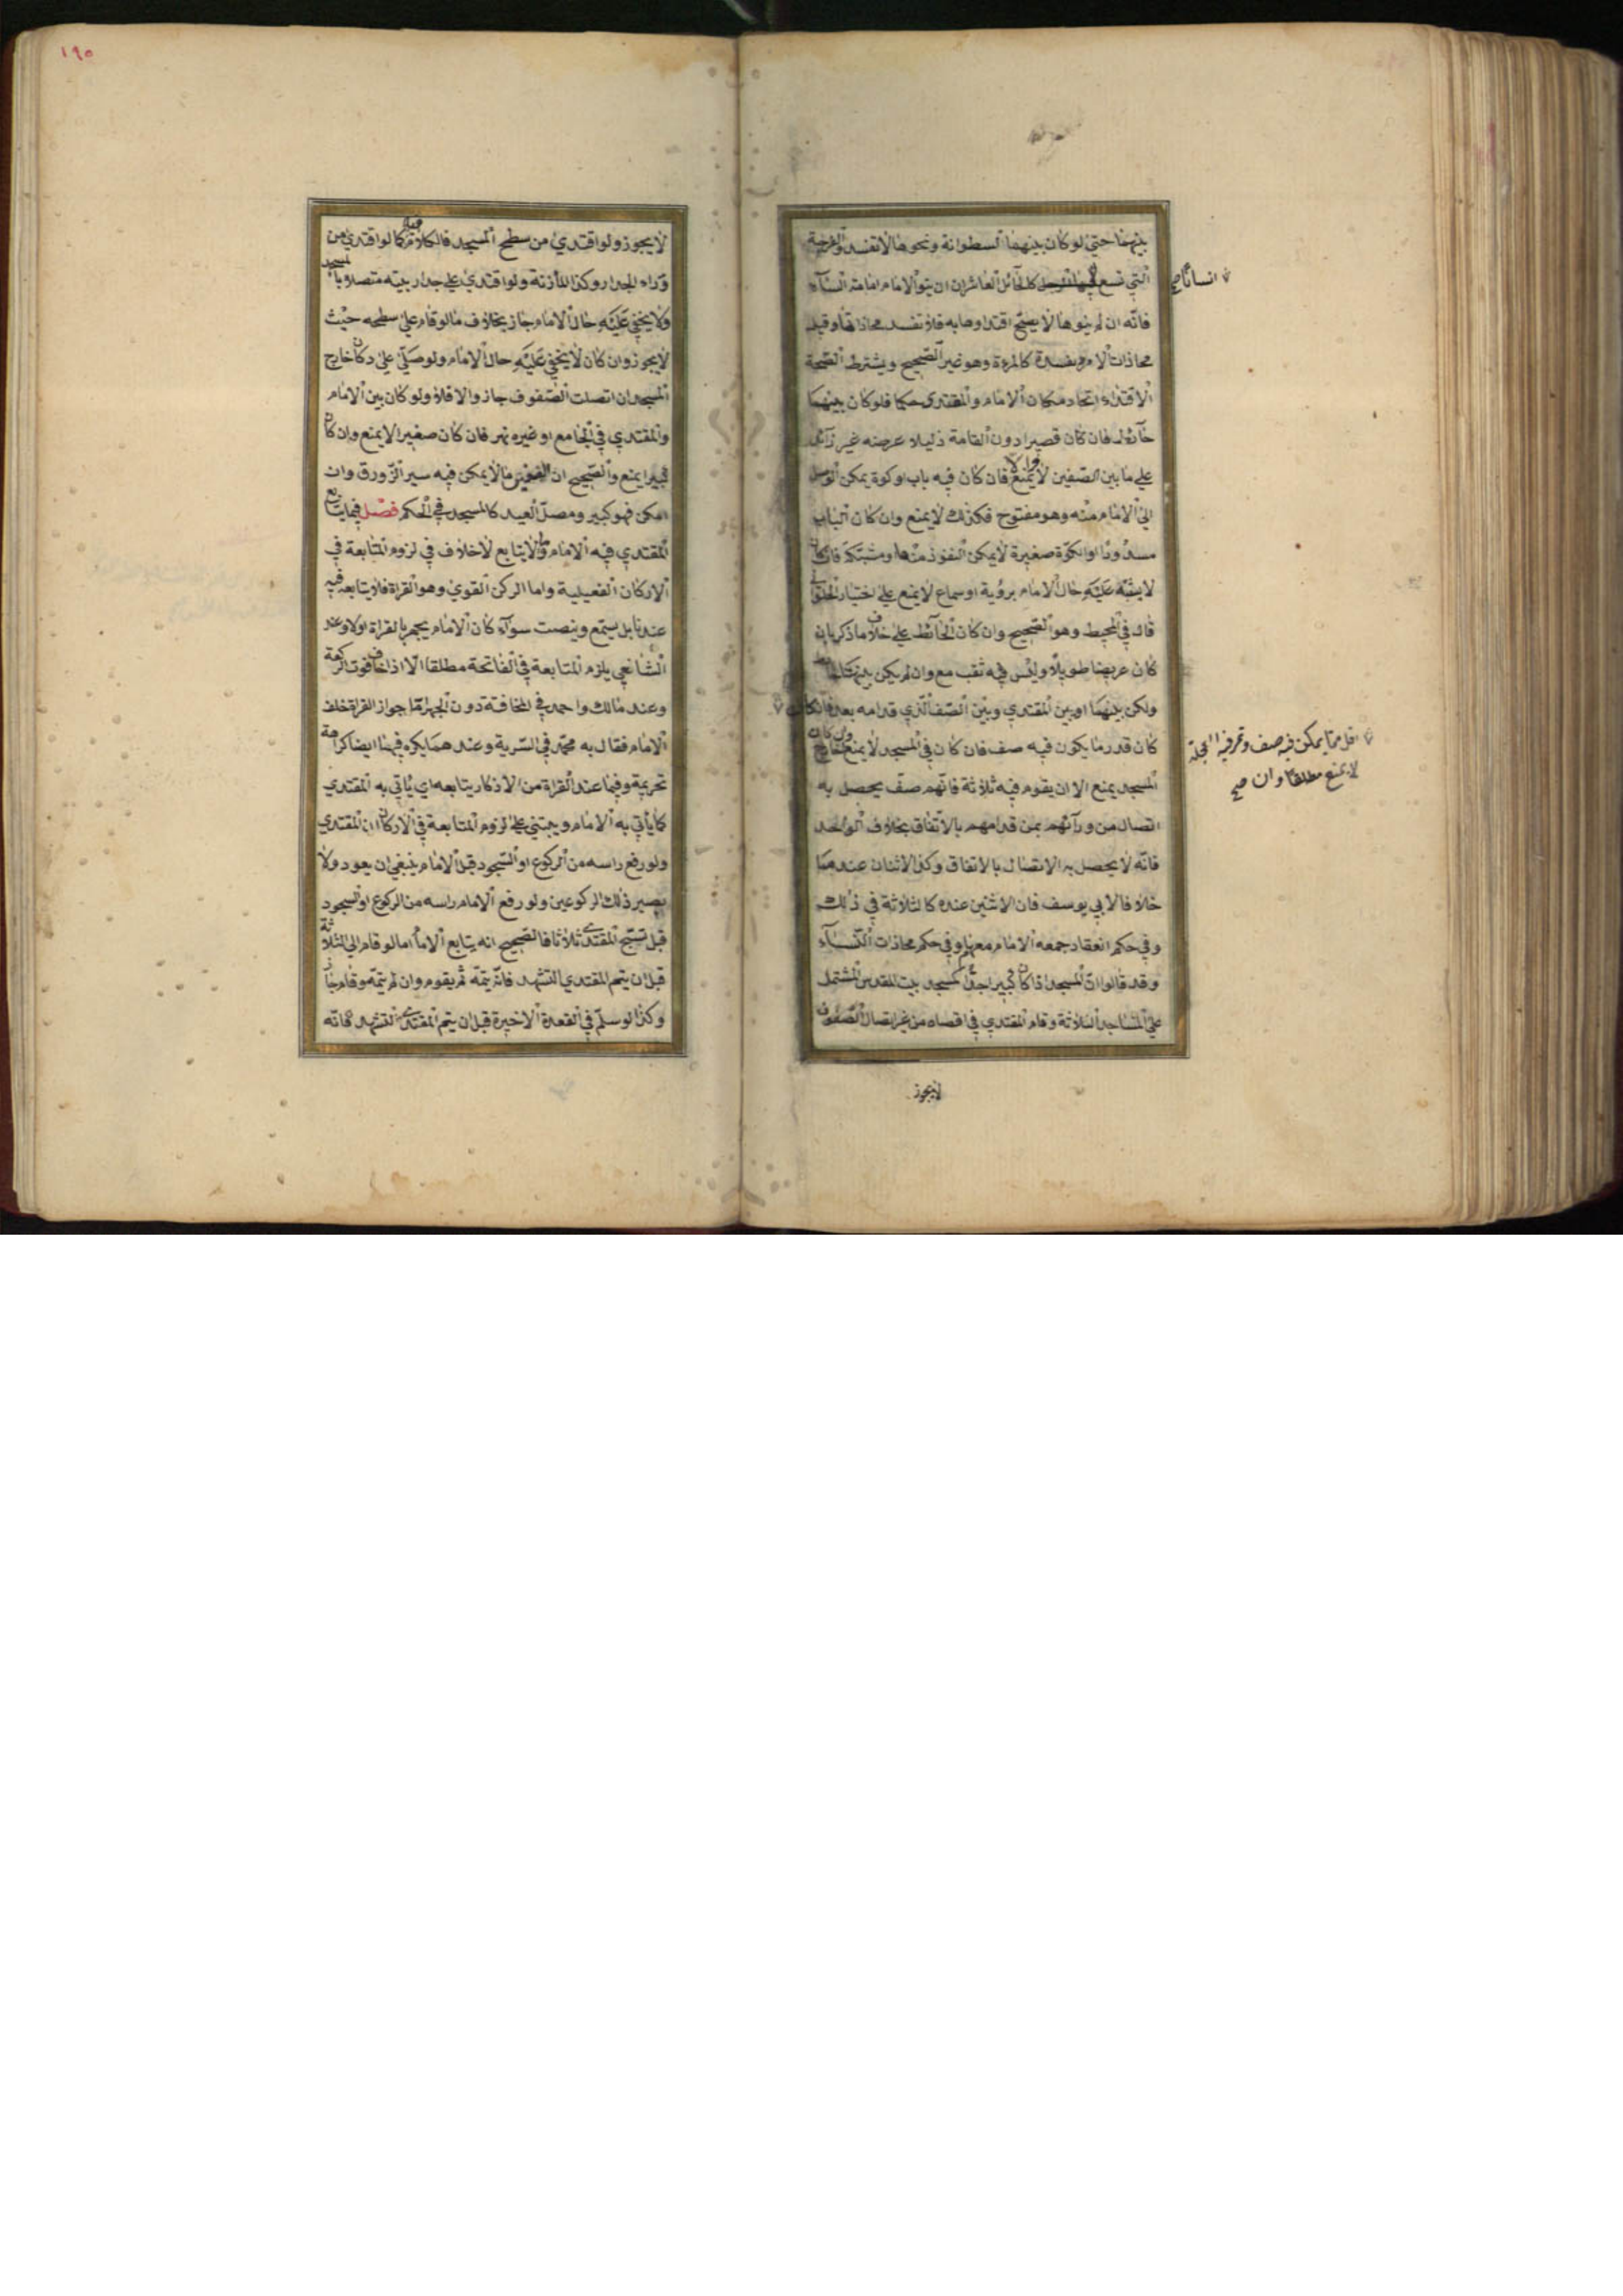 بينهما حتى لو كان بينهما اسطوانة ونحوها لا تفسد والفرجة
التي تسع كالحائل العاشر ان ينوي الامام امامة النساء
فانه ان لم ينوها لا يصح اقتداوها به فلا تفسد محاذاتها وقيل
محاذات الامرد مفسدة كالمرءة وهو غير الصحيح ويشترط لصحة
الاقتداء اتحاد مكان الامام والمقتدى حكما فلو كان بينهما
حائط فان كان قصيرا دون القامة ذليلا عرضه غير زائد
على ما بين الصفين لا يمنع والا فان كان فيه باب او كوة يمكن الوصول
الى الامام منه وهو مفتوح فكذلك لا يمنع وان كان الباب
مسدودا او الكوة صغيرة لا يمكن النفوذ منها او مشبكة فان كان
لا يشتبه عليه حال الامام برؤية او سماع لا يمنع على اختيار الحلواني
قال في المحيط وهو الصحيح وان كان الحائط على خلاف ما ذكر بان
كان عريضا طويلا وليس فيه ثقب منع وان لم يكن بينهما حائط
ولكن بينهما او بين المقتدي وبين الصف الذي قدامه بعد فان كان
كان قدر ما يكون فيه صف فان كان في المسجد لا يمنع وان كان خارج
المسجد يمنع الا ان يقوم فيه ثلاثة فانهم صف يحصل به
اتصال من ورائهم بمن قدامهم بالاتفاق بخلاف الواحد
فانه لا يحصل به الاتصال بالاتفاق وكذا الاثنان عندهما
خلافا لابي يوسف فان الاثنين عنده كالثلاثة في ذلك
وفي حكم انعقاد جمعه الامام معهما وفي حكم محاذات النساء
وقد قالوا ان المسجد اذا كان كبيرا جدا كمسجد بيت المقدس المشتمل
على المساجد الثلاثة وقام المقتدي في اقصاه من غير اتصال الصفوف
لا يجوز
انسانا صح
اقل مما يمكن فيه صف وتمر فيه العجلة
لا يمنع مطلقا وان صح
١٩٥
لا يجوز ولو اقتدى من سطح المسجد فالكلام فيه كما لو اقتدى من
وراء الجدار وكذا المأذنة ولو اقتدى على جدار بيته متصلا بالمسجد
ولا يخفى عليه حال الامام جاز بخلاف ما لو قام على سطحه حيث
لا يجوز وان كان لا يخفى عليه حال الامام ولو صلى على دكان خارج
المسجد ان اتصلت الصفوف جاز والا فلا ولو كان بين الامام
والمقتدي في الجامع او غيره نهر فان كان صغيرا لا يمنع وان كان
كبيرا يمنع والصحيح ان الصغير ما لا يمكن فيه سير الزورق وان
امكن فهو كبير ومصلى العيد كالمسجد في الحكم فصل فيما يتابع
المقتدي فيه الامام وما لا يتابع لا خلاف في لزوم المتابعة في
الاركان الفعيلية واما الركن القوي وهو القراة فلا يتابعه فيه
عندنا بل يستمع وينصت سوآء كان الامام يجهر بالقراة او لا وعند
الشافعي يلزم المتابعة في الفاتحة مطلقا الا اذا خاف فوت الركعة
وعند مالك واحمد في المخافتة دون الجهر اما جواز القراة خلف
الامام فقال به محمد في السرية وعندهما يكره فيهما ايضا كراهة
تحريمة وفيما عند القراة من الاذكار يتابعه اي يأتي به المقتدي
كما يأتي به الامام ويبتني على لزوم المتابعة في الاركان ان المقتدي
ولو رفع راسه من الركوع او السجود قبل الامام ينبغي ان يعود ولا
يصير ذلك الركوعين ولو رفع الامام راسه من الركوع او السجود
قبل تسبيح المقتدى ثلاثا فالصحيح انه يتابع الامام اما لو قام الى الثالثة
قبل ان يتم المقتدي التشهد فانه يتمه ثم يقوم وان لم يتمه وقام جاز
وكذا لو سلم في القعدة الاخيرة قبل ان يتم المقتدى التشهد فانه